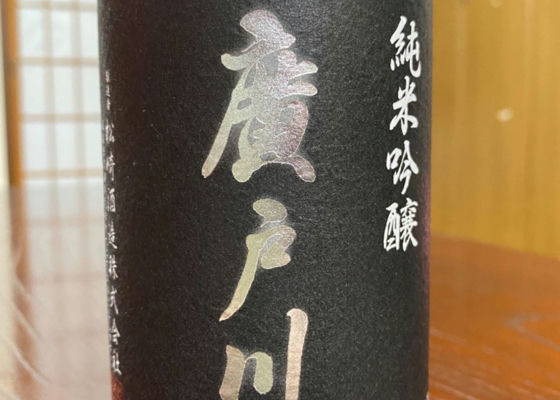 純米吟醸
廣戸川
製造者 松崎酒造株式会社